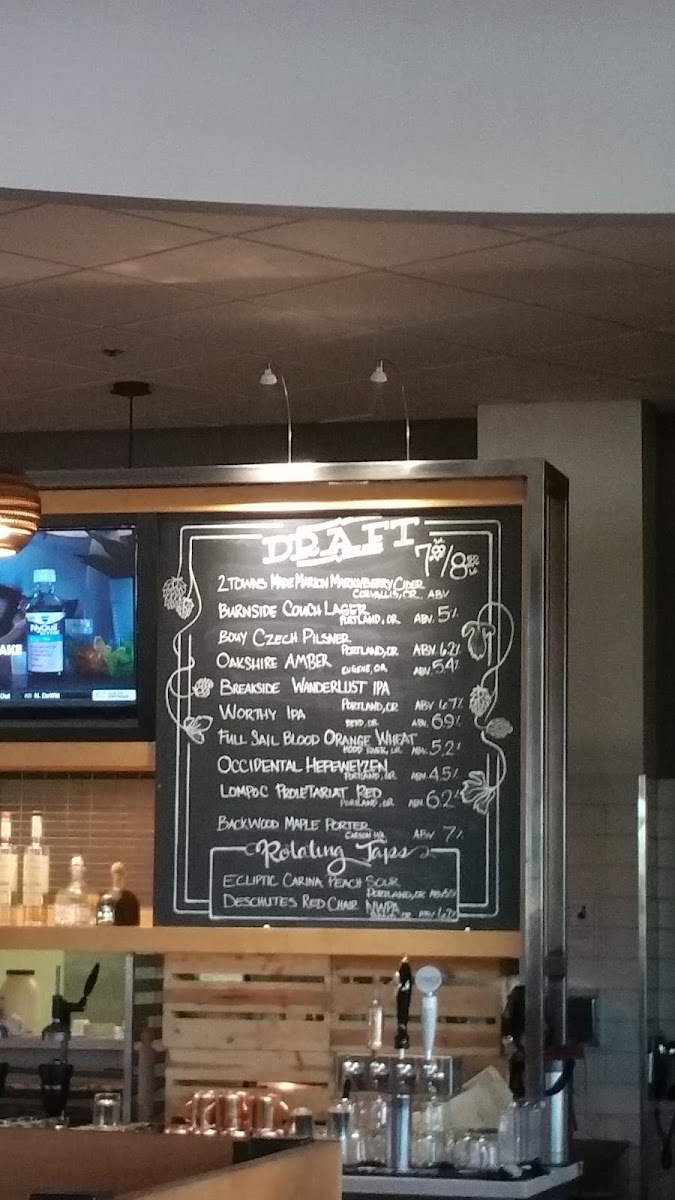 DRAFT
7.00/8.50
2 TOWNS MADE MARION MARIONBERRY CIDER
CORVALLIS, OR ABV
BURNSIDE COUCH LAGER
PORTLAND, OR ABV. 5%
BOUY CZECH PILSNER
PORTLAND, OR ABV. 6.2%
OAKSHIRE AMBER
EUGENE, OR ABV. 5.4%
BREAKSIDE WANDERLUST IPA
PORTLAND, OR ABV 6.7%
WORTHY IPA
BEND, OR ABV. 6.9%
FULL SAIL BLOOD ORANGE WHEAT
HOOD RIVER, OR ABV. 5.2%
OCCIDENTAL HEFEWEIZEN
PORTLAND, OR ABV 4.5%
LOMPOC PROLETARIAT RED
PORTLAND, OR ABV. 6.2%
BACKWOOD MAPLE PORTER
CARSON WA ABV 7%
Rotating Taps
ECLIPTIC CARINA PEACH SOUR
PORTLAND, OR ABV
DESCHUTES RED CHAIR NWPA
OR ABV 6.2%
NyQuil
N. Dewitt